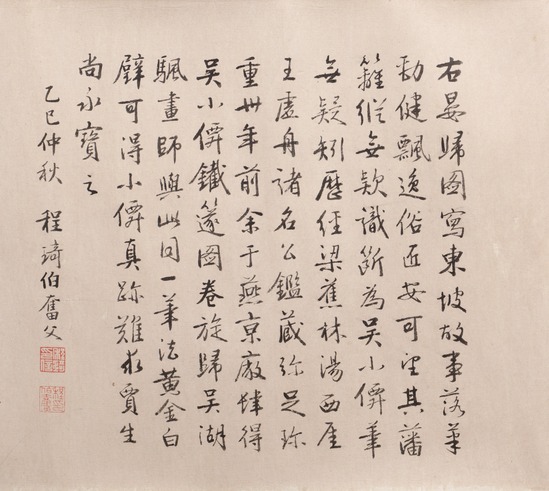 右晏歸圖寫東坡故事落筆
勁健飄逸俗匠安可望其藩
籬縱無款識斷為吳小僊筆
無疑矧歷經梁蕉林湯西厓
王虛舟諸名公鑑藏弥足珎
重卅年前余于燕京廠肆得
吳小僊鐵篴圖卷旋歸吳湖
颿畫師與此同一筆法黃金白
璧可得小僊真跡難求賈生
尚永寶之
乙巳仲秋 程琦伯奮父